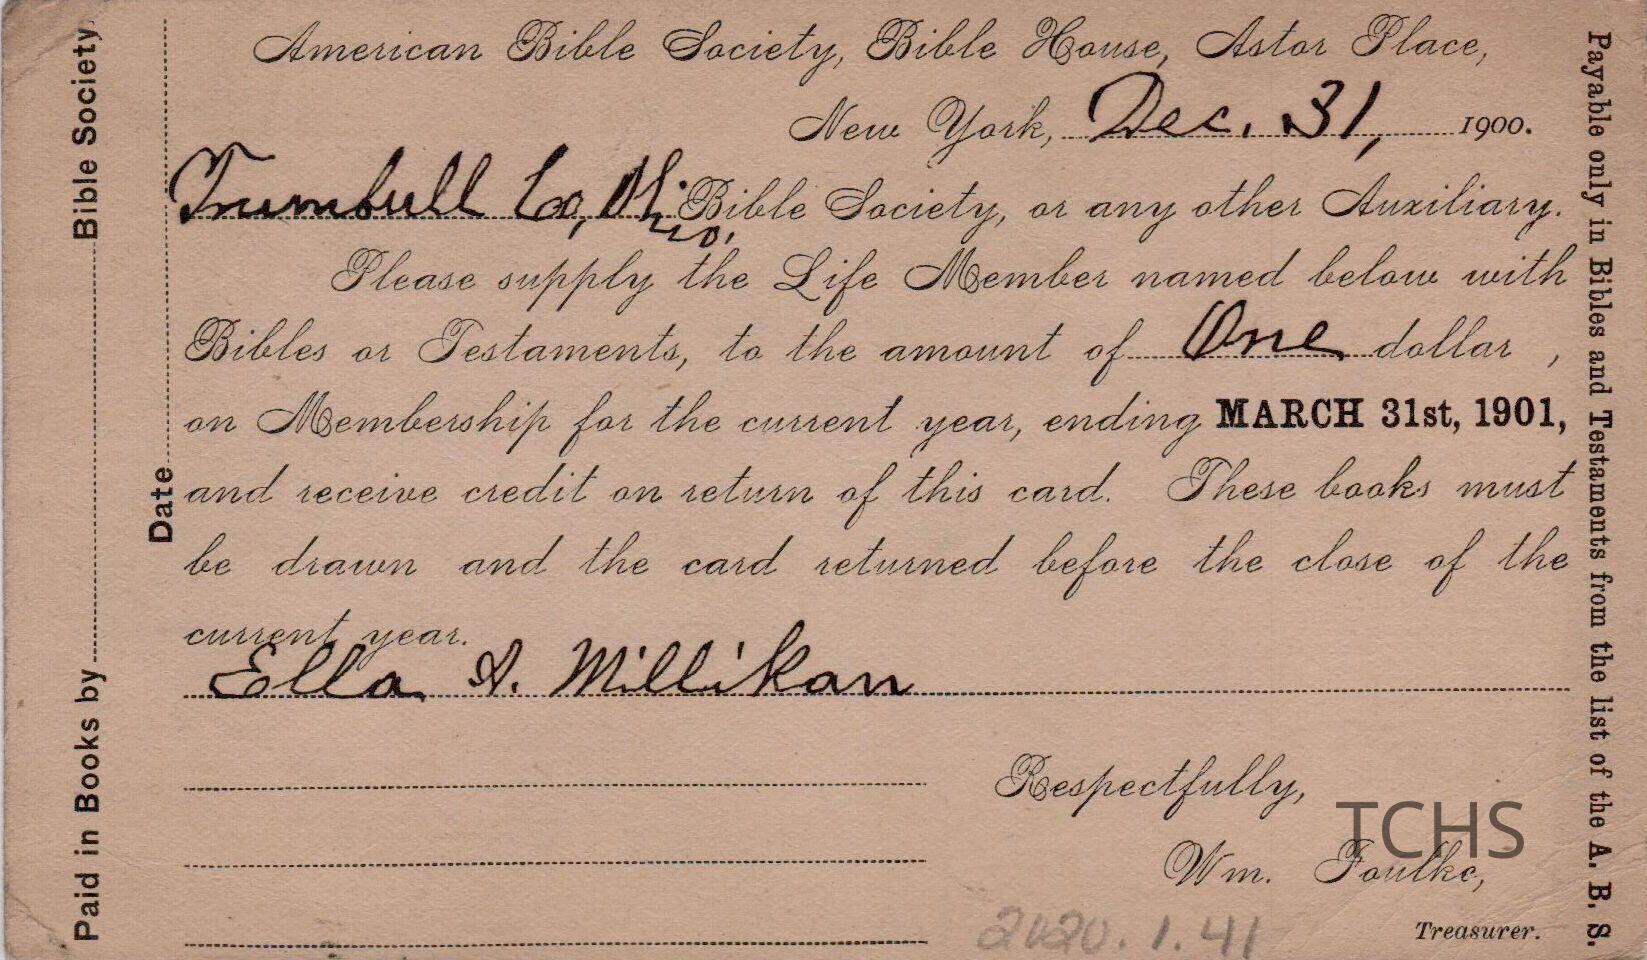 American Bible Society, Bible House, Astor Place,
New York, Dec. 31, 1900.
Trumbull Co, Ohio, Bible Society, or any other Auxiliary.
Please supply the Life Member named below with
Bibles or Testaments, to the amount of One dollar ,
on Membership for the current year, ending MARCH 31st, 1901,
and receive credit on return of this card. These books must
be drawn and the card returned before the close of the
current year.
Ella A. Millikan
Respectfully,
Wm. Foulke,
Treasurer.
2020.1.41
TCHS
Paid in Books by Bible Society.
Date
Payable only in Bibles and Testaments from the list of the A. B. S.